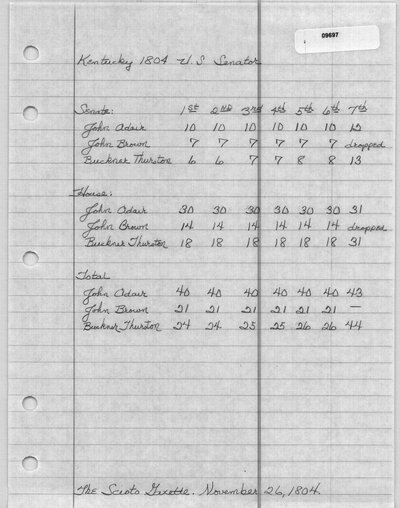 09697
Kentucky 1804 U.S Senator
Senate: 1st 2nd 3rd 4th 5th 6th 7th
John Adair 10 10 10 10 10 10 12
John Brown 7 7 7 7 7 7 dropped
Buckner Thurston 6 6 7 7 8 8 13
House:
John Adair 30 30 30 30 30 30 31
John Brown 14 14 14 14 14 14 dropped
Buckner Thurston 18 18 18 18 18 18 31
Total
John Adair 40 40 40 40 40 40 43
John Brown 21 21 21 21 21 21 —
Buckner Thurston 24 24 25 25 26 26 44
The Scioto Gazette. November 26, 1804.